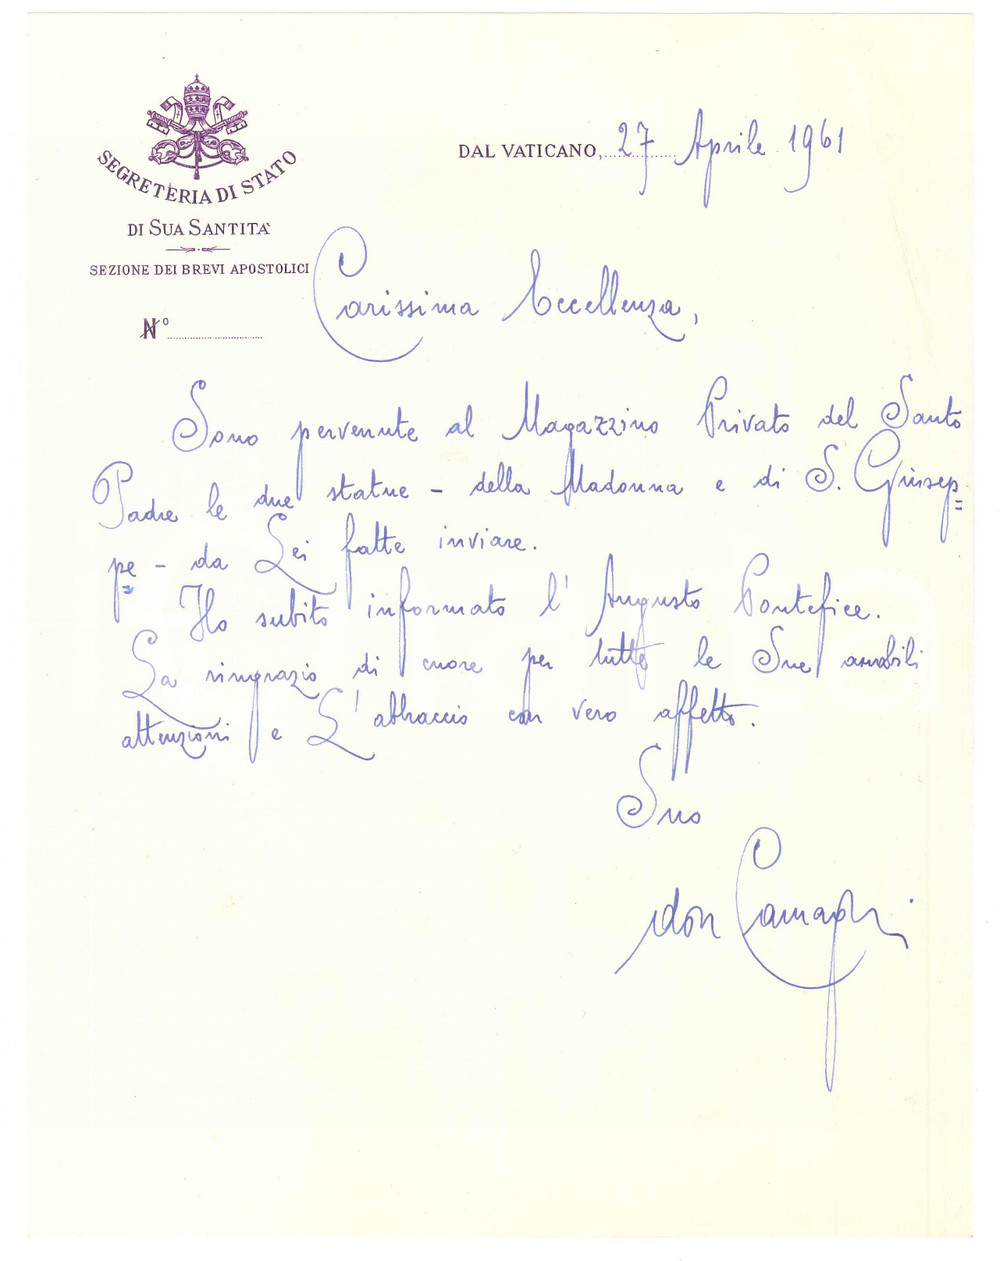 SEGRETERIA DI STATO
DI SUA SANTITA'
SEZIONE DEI BREVI APOSTOLICI
N°
DAL VATICANO, 27 Aprile 1961
Carissima Eccellenza,
Sono pervenute al Magazzino Privato del Santo
Padre le due statue - della Madonna e di S. Giusep=
pe - da Lei fatte inviare.
Ho subito informato l'Augusto Pontefice.
La ringrazio di cuore per tutte le Sue amabili
attenzioni e L'abbraccio con vero affetto.
Suo
don